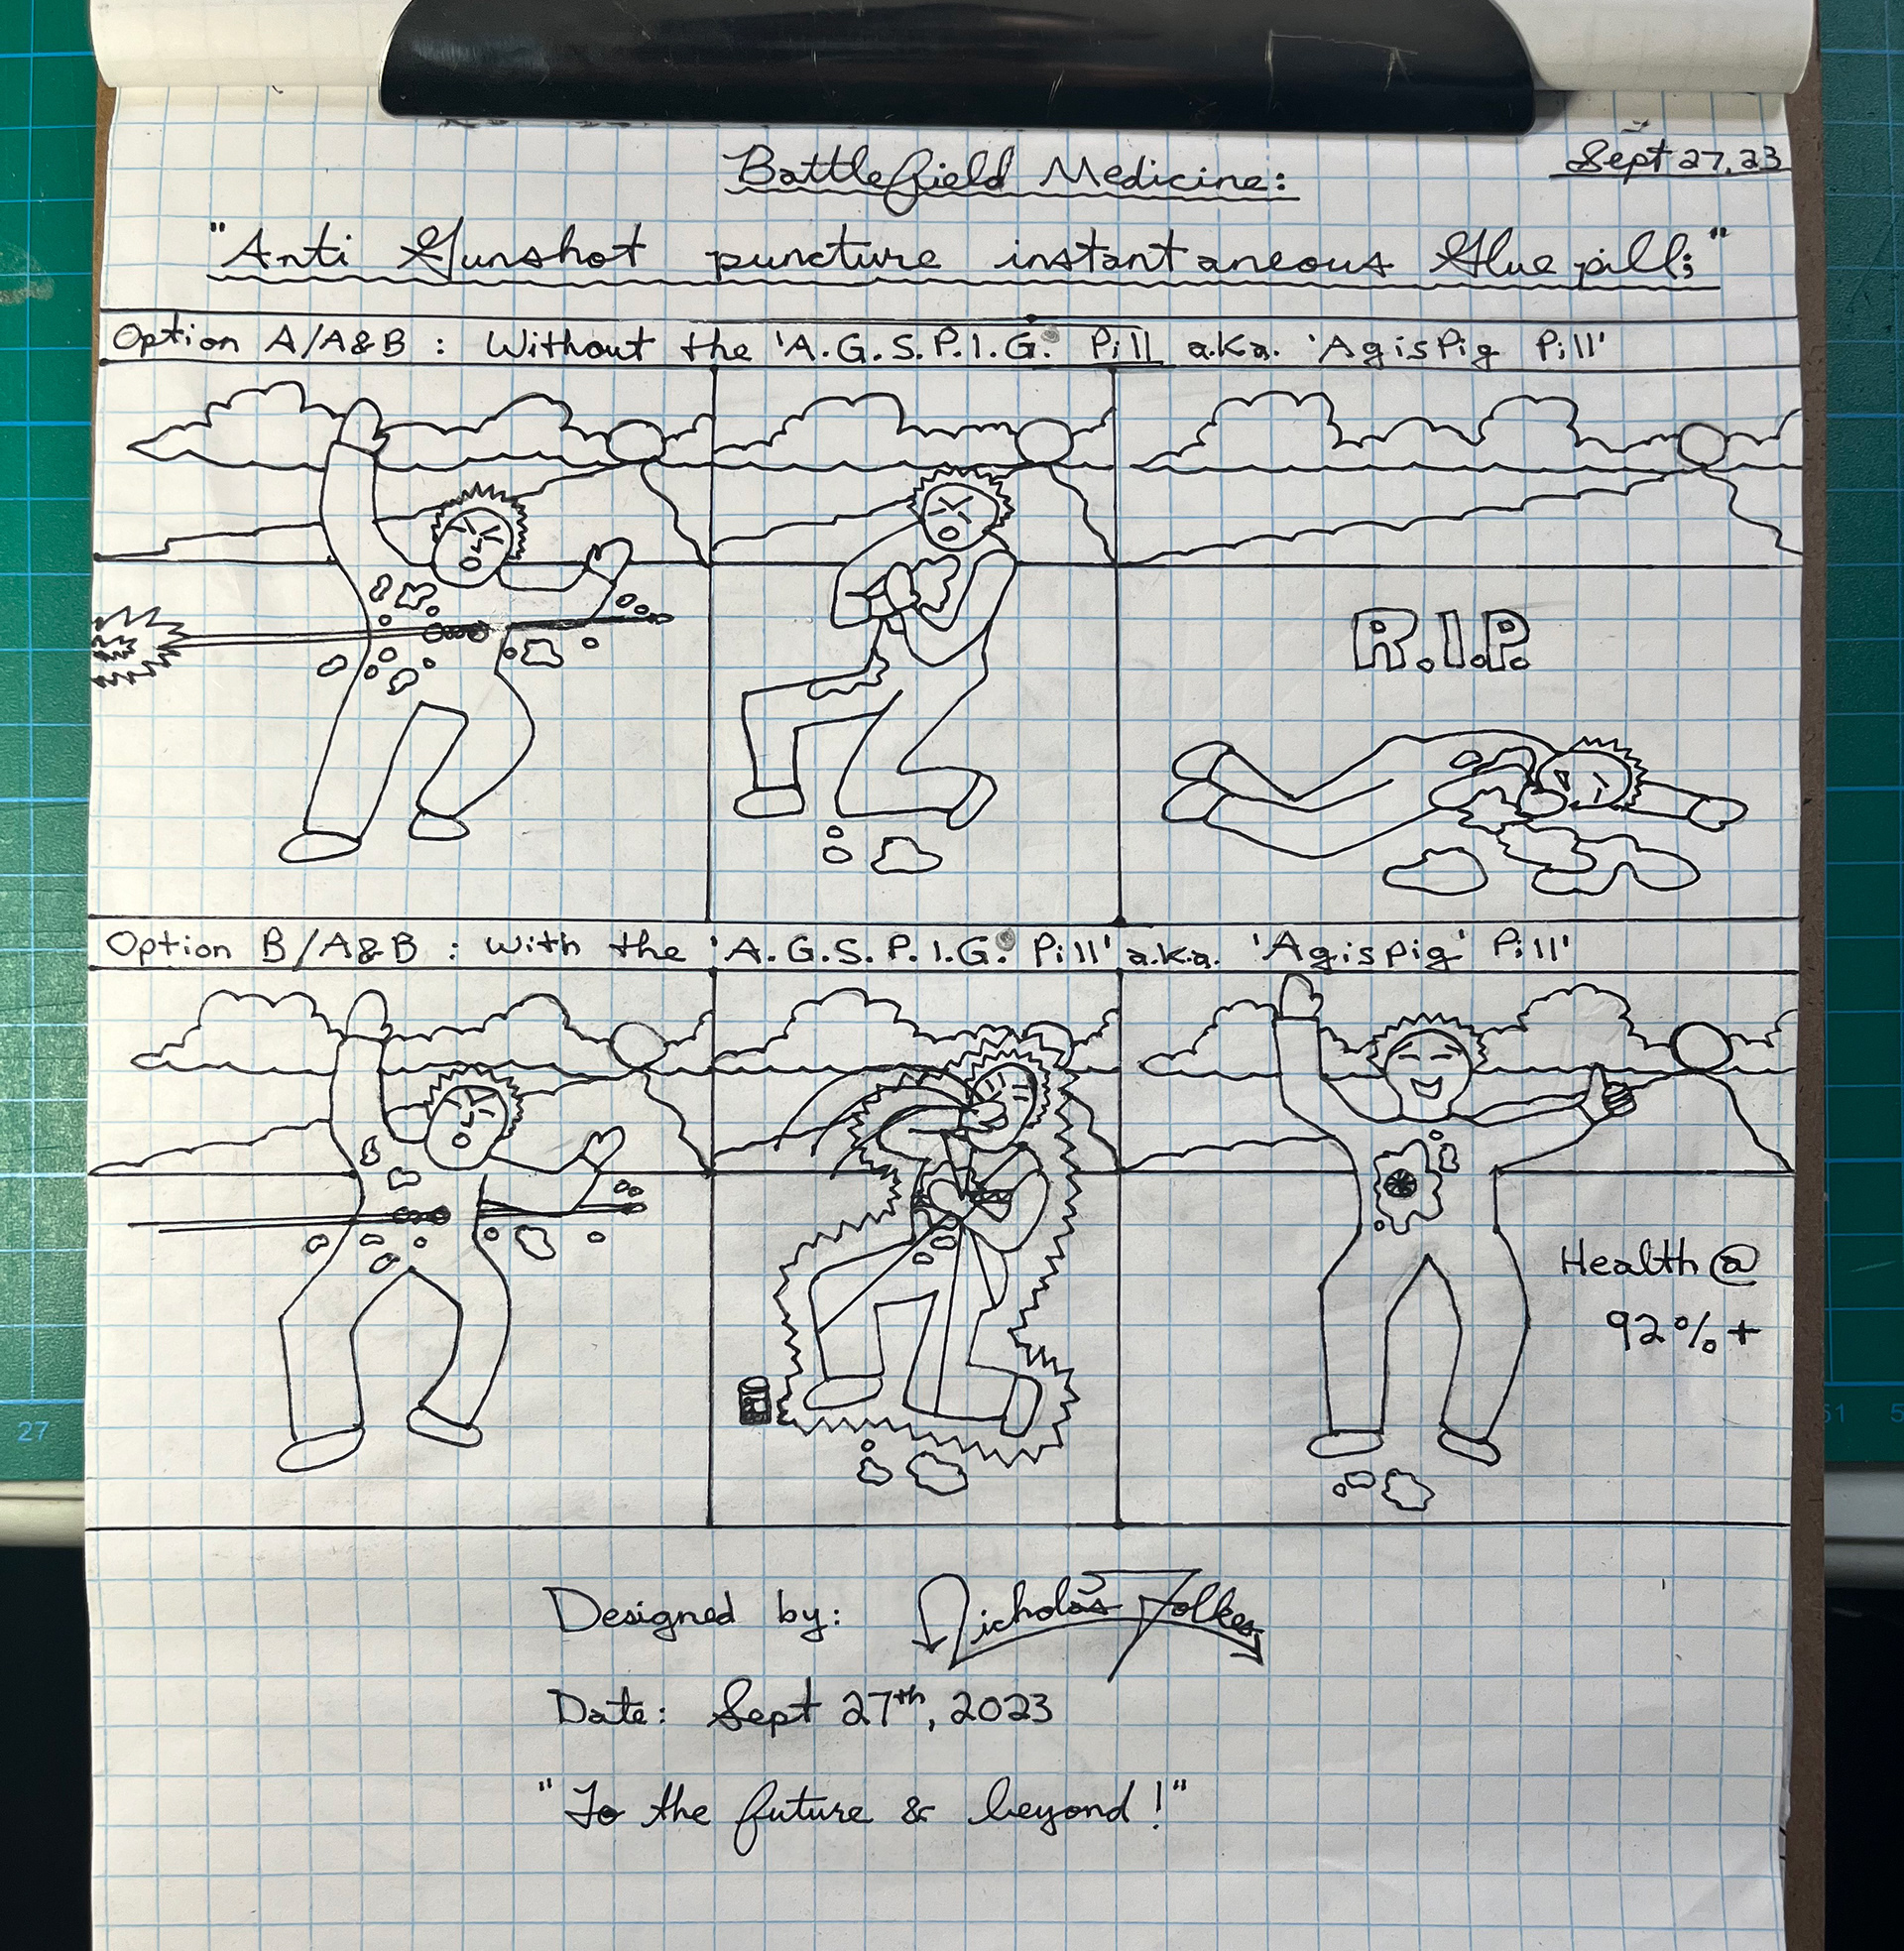 Battlefield Medicine:
Sept 27, 23
"Anti Gunshot puncture instantaneous Glue pill;"
Option A/A&B : Without the 'A.G.S.P.I.G.' Pill a.k.a. 'Agispig Pill'
R.I.P.
Option B/A&B : With the 'A.G.S.P.I.G.' Pill' a.k.a. 'Agispig' Pill'
Health @
92%+
Designed by: Nicholas Folkes
Date: Sept 27th, 2023
"To the future & beyond!"
27
51